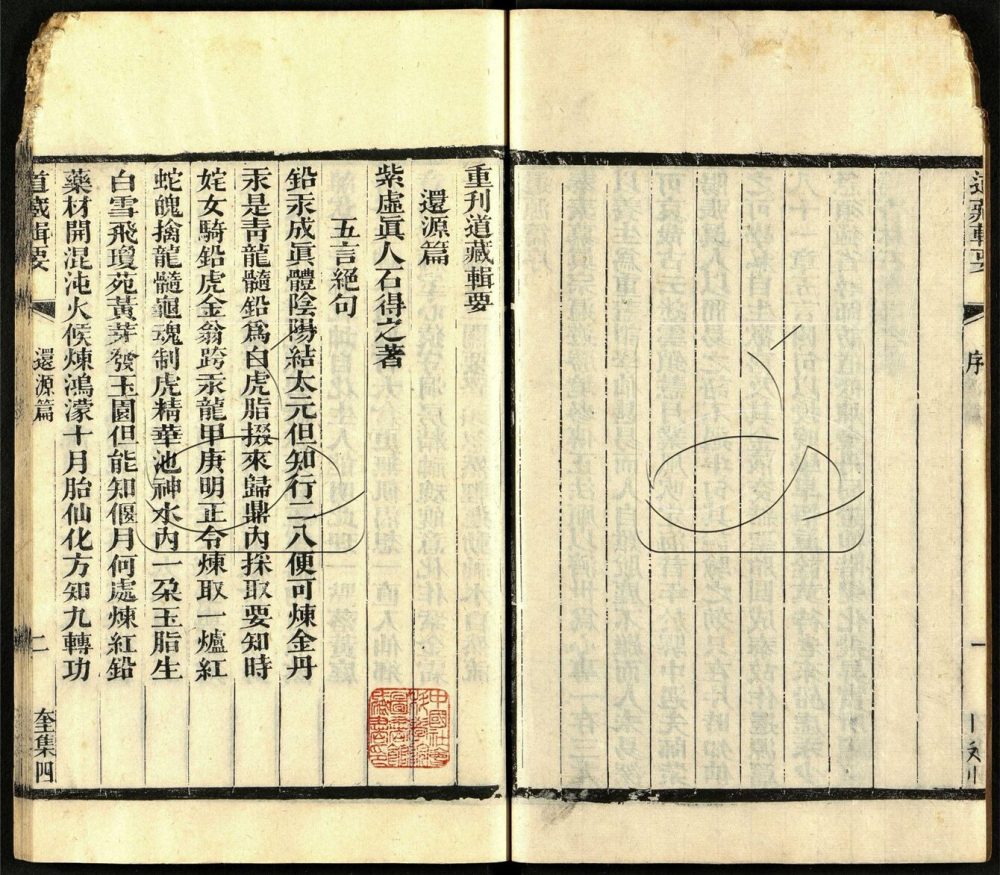 序
一
重刊道藏輯要
還源篇
紫虛眞人石得之著
五言絕句
鉛汞成眞體陰陽結太元但知行二八便可煉金丹
汞是靑龍髓鉛爲白虎脂掇來歸鼎內採取要知時
姹女騎鉛虎金翁跨汞龍甲庚明正令煉取一爐紅
蛇魄擒龍髓龜魂制虎精華池神水內一朶玉脂生
白雪飛瓊苑黃芽發玉園但能知偃月何處煉紅鉛
藥材開混沌火候煉鴻濛十月胎仙化方知九轉功
道藏輯要
還源篇
二
奎集四
中國社會